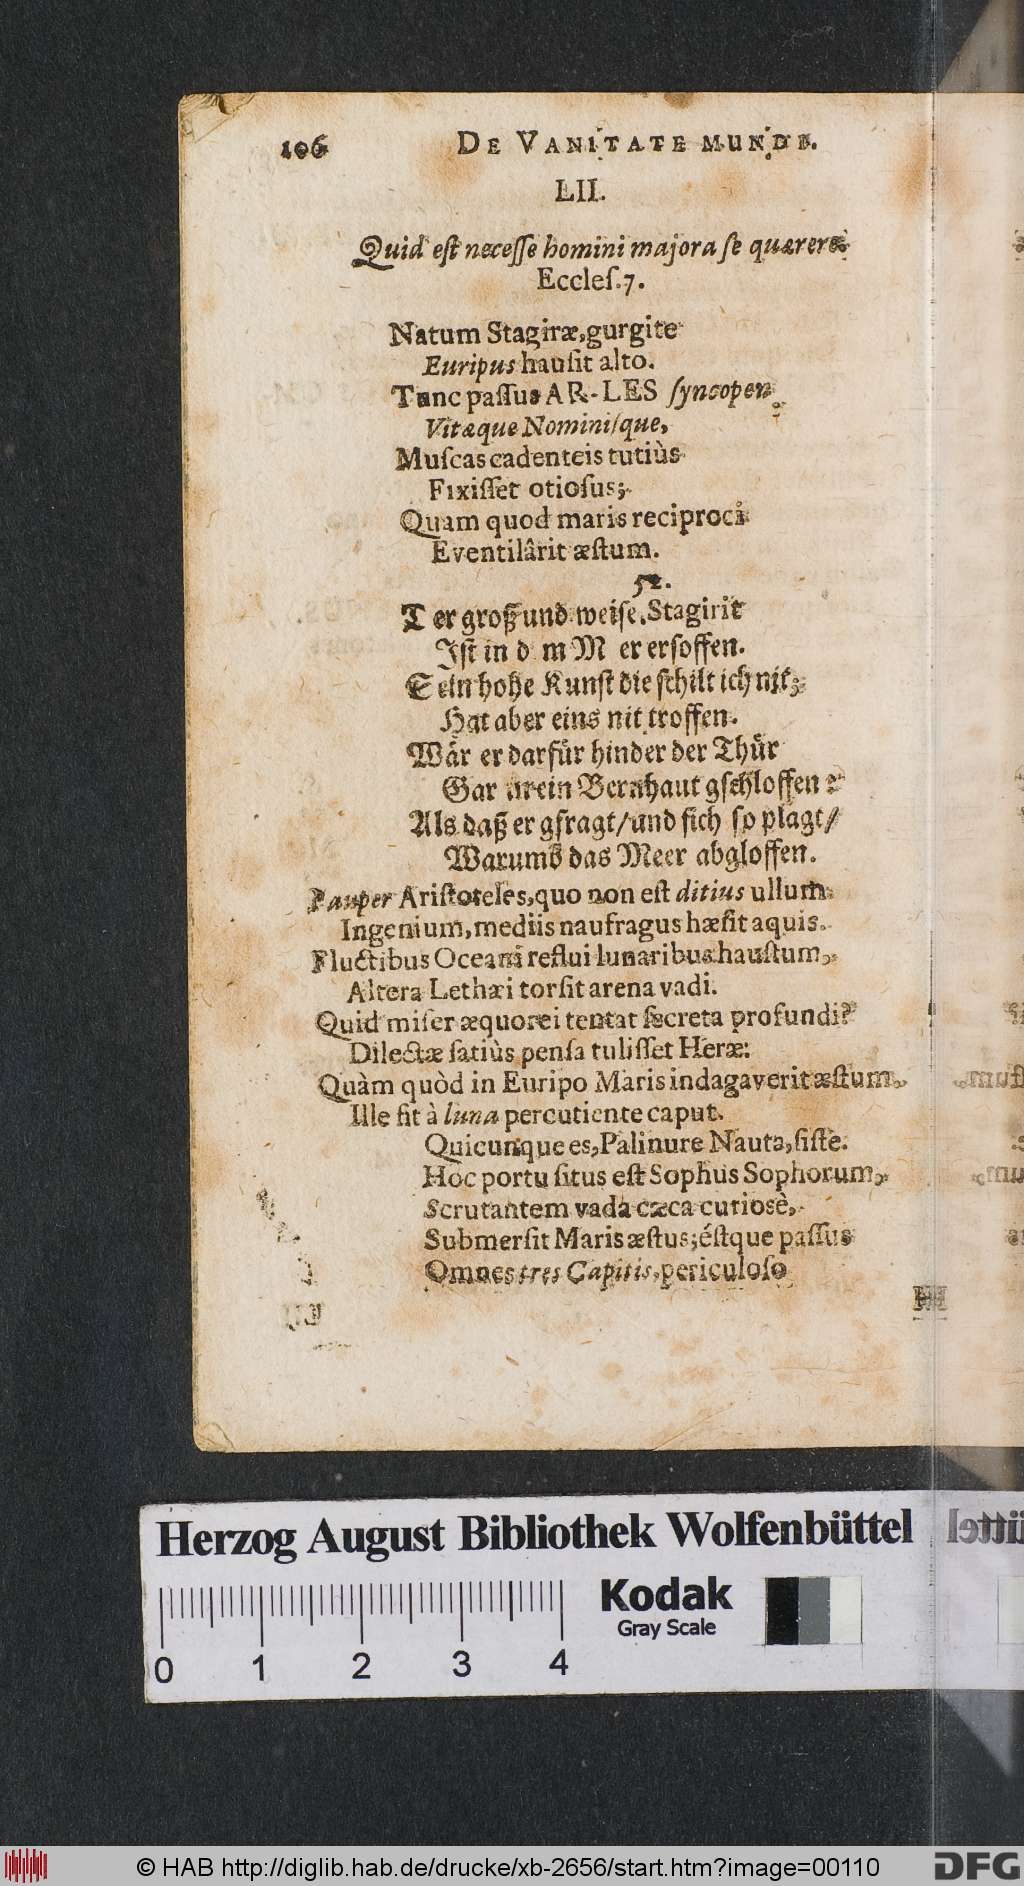 106 DE VANITATE MUNDI.
LII.
Quid est necesse homini majora se quærere?
Eccles. 7.
Natum Stagiræ, gurgite
Euripus hausit alto.
Tunc passus AR-LES syncopen,
Vitæque Nominisque,
Muscas cadenteis tutiùs
Fixisset otiosus;
Quam quod maris reciproci
Eventilârit æstum.
52.
Der groß und weise Stagirit
Ist in dem Meer ersoffen.
Sein hohe Kunst die schilt ich nit;
Hat aber eins nit troffen.
Wär er darfür hinder der Thür
Gar in ein Bernhaut gschloffen:
Als daß er gfragt/ und sich so plagt/
Warumb das Meer abgloffen.
Pauper Aristoteles, quo non est ditius ullum
Ingenium, mediis naufragus hæsit aquis.
Fluctibus Oceani reflui lunaribus haustum,
Altera Lethæi torsit arena vadi.
Quid miser æquorei tentat secreta profundi?
Dilectæ satiùs pensa tulisset Heræ:
Quàm quòd in Euripo Maris indagaverit æstum,
Ille fit à luna percutiente caput.
Quicunque es, Palinure Nauta, siste.
Hoc portu situs est Sophus Sophorum,
Scrutantem vada cæca curiosè,
Submersit Maris æstus; éstque passus
Omnes tres Capitis, periculoso
Herzog August Bibliothek Wolfenbüttel
Kodak
Gray Scale
0 1 2 3 4
© HAB http://diglib.hab.de/drucke/xb-2656/start.htm?image=00110
DFG